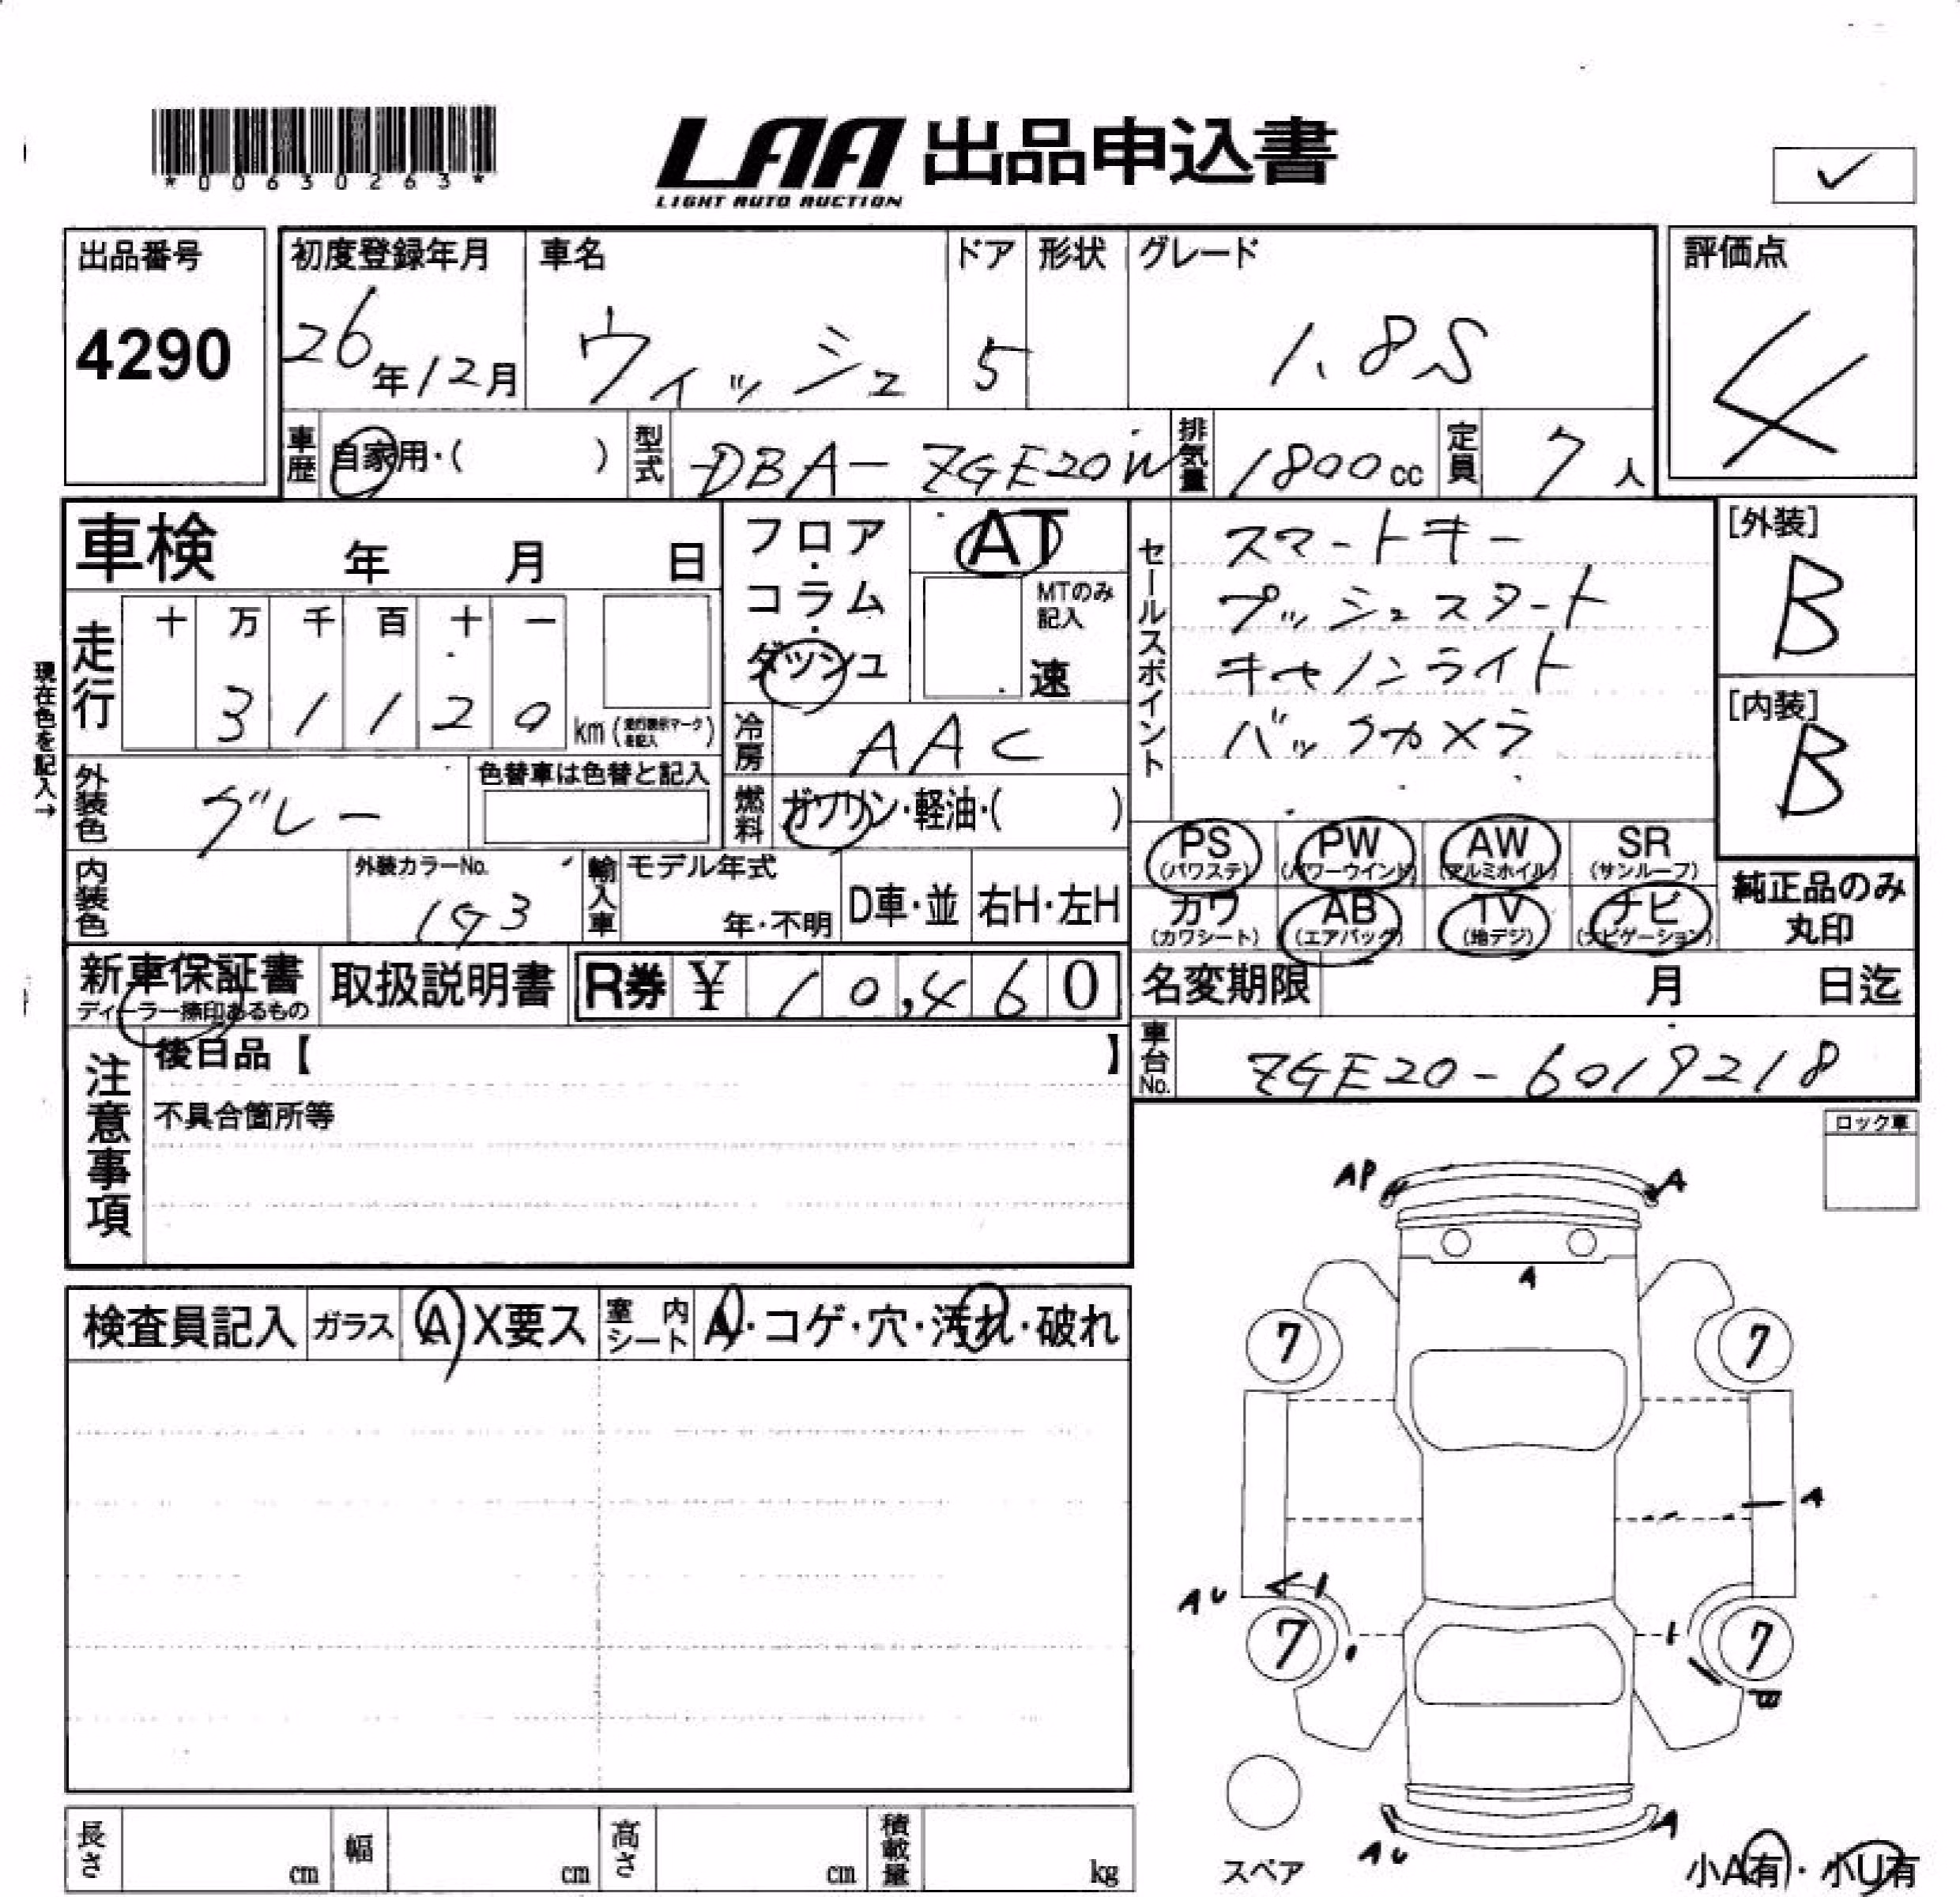 *00630263*
LAA 出品申込書
LIGHT AUTO AUCTION
✓
出品番号
4290
初度登録年月
26年12月
車名
ウィッシュ
ドア
5
形状
グレード
1.8S
評価点
4
車歴 自家用・( )
型式 DBA-ZGE20W
排気量 1800cc
定員 7人
車検 年 月 日
フロア・コラム・ダッシュ
AT
MTのみ記入
速
セールスポイント
スマートキー
プッシュスタート
キセノンライト
バックカメラ
[外装]
B
[内装]
B
現在色を記入→
走行
十 万 千 百 十 一
3 1 1 2 0
km(走行表示マーク を記入)
冷房 AAC
外装色 グレー
色替車は色替と記入
燃料 ガソリン・軽油・( )
内装色
外装カラーNo.
1G3
輸入車
モデル年式
年・不明
D車・並
右H・左H
PS (パワステ)
PW (パワーウインド)
AW (アルミホイル)
SR (サンルーフ)
カワ (カワシート)
AB (エアバッグ)
TV (地デジ)
ナビ (ナビゲーション)
純正品のみ丸印
新車保証書
ディーラー捺印あるもの
取扱説明書
R券 ¥ 10,460
名変期限 月 日迄
注意事項
後日品【 】
不具合箇所等
車台No. ZGE20-6019218
ロック車
AP
A
A
7
7
A
AU
7
7
B
AU
A
スペア
小A有・小U有
検査員記入
ガラス A X要ス
室内シート A・コゲ・穴・汚れ・破れ
長さ cm
幅 cm
高さ cm
積載量 kg